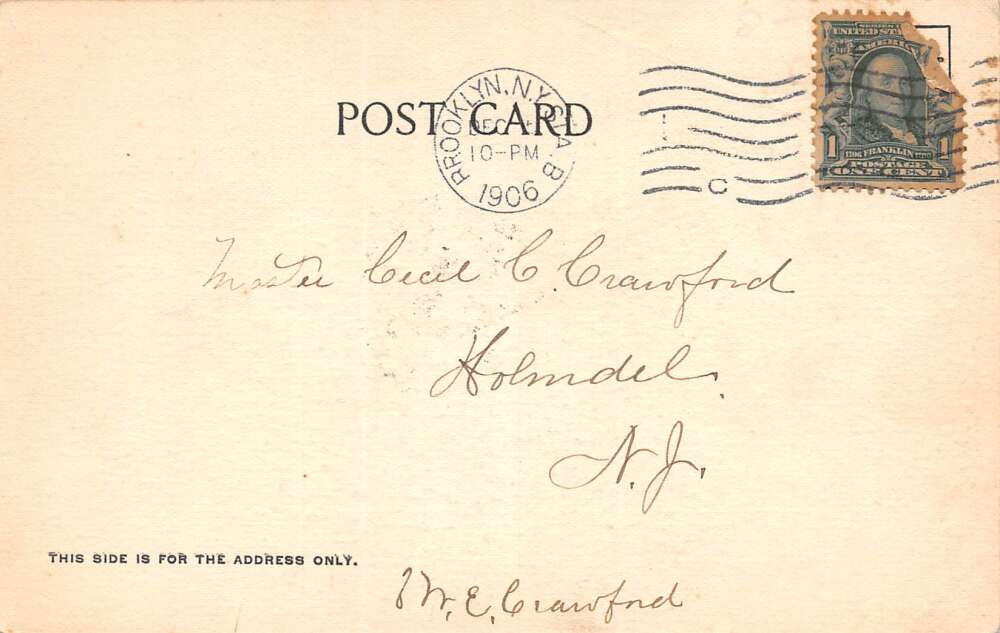 POST CARD
BROOKLYN, N.Y. STA. B
DEC
10-PM
1906
C
SERIES
UNITED STA
AMERICA
1 1706 FRANKLIN 1790 1
POSTAGE
ONE CENT
Master Cecil C. Crawford
Holmdel.
N.J.
THIS SIDE IS FOR THE ADDRESS ONLY.
W. E. Crawford